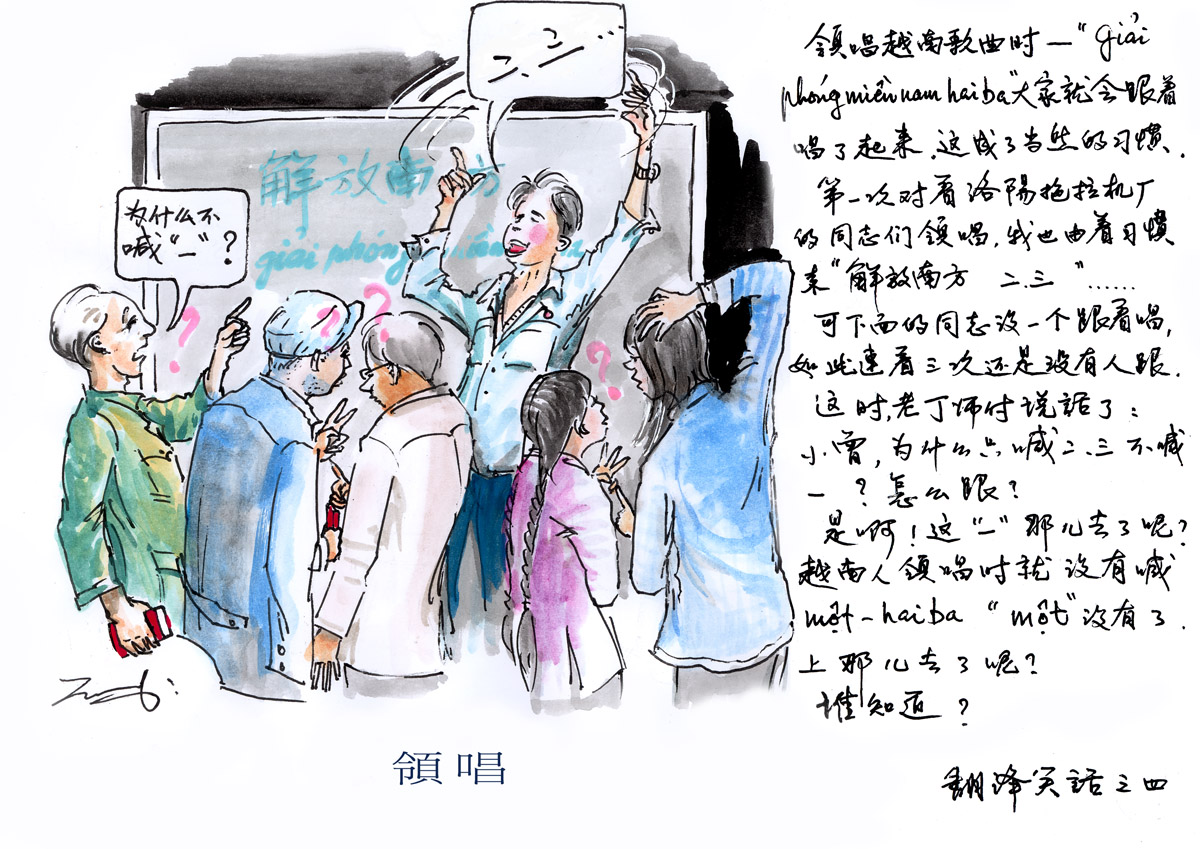 二、三……
解放南方
giải phóng
为什么不
喊“一”?
領唱
領唱越南歌曲时—“giải
phóng miền nam hai ba”大家就会跟着
唱了起来.这成了当然的习惯.
第一次对着洛陽拖拉机厂
的同志们領唱,我也由着习惯
来“解放南方 二.三 ”……
可下面的同志没一个跟着唱,
如此連着三次还是没有人跟.
这时,老丁师付说話了:
小曾,为什么只喊二.三不喊
一?怎么跟?
是啊!这“一”那儿去了呢?
越南人領唱时就没有喊
một-hai ba “một”没有了.
上那儿去了呢?
谁知道?
翻译笑話之四